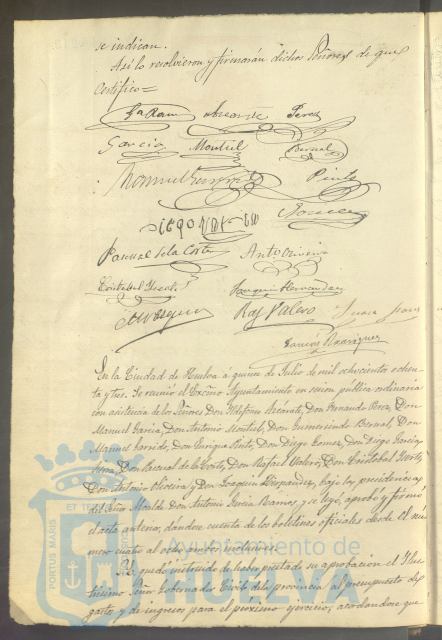 se indican.
Así lo resolvieron y firmarán dichos Señores de que
Certifico =
Garcia Montiel Bernal
Pinto
Pascual de la Corte Antº Oliveira
Cristobal Joaquin Hernandez
Raf Valero
Ramón Rodriguez
En la Ciudad de Huelva á quince de Julio de mil ochocientos ochen-
ta y tres. Se reunió el Excmo Ayuntamiento en sesion publica ordinaria
con asistencia de los Señores Don Ildefonso Don Fernando Perez, Don
Manuel Garcia, Don Antonio Montiel, Don Gumersindo Bernal, Don
Manuel Garrido, Don Pinto, Don Diego Gomez, Don Diego Garcia
Don Pascual de la Corte, Don Rafael Valero, Don Cristobal
Don Antonio Oliveira y Don Joaquin Hernandez, bajo la presidencia
del Señor Alcalde Don Antonio Garcia Ramos, y se leyó, aprobó y firmó
el acta anterior, dándose cuenta de los boletines oficiales desde el nú-
mero cuatro al ocho ambos inclusives.
quedó enterado de haber prestado su aprobacion el Ilus-
trisimo Señor Gobernador Civil de la provincia al presupuesto de
gastos y de ingresos para el proximo ejercicio, acordándose que
PORTUS MARIS ET TE
Ayuntamiento de
HUELVA